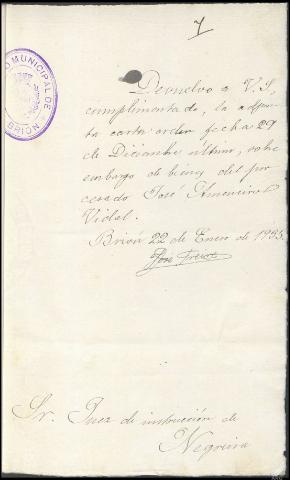 7
O MUNICIPAL DE
BRIÓN
Devuelvo a V.S.,
cumplimentada, la adjun-
ta carta orden fecha 29
de Diciembre último, sobre
embargo de bienes del pro-
cesado José Ameneiros
Vidal.
Brión 22 de Enero de 1935.
José Freire
Sr. Juez de instrucción de
Negreira